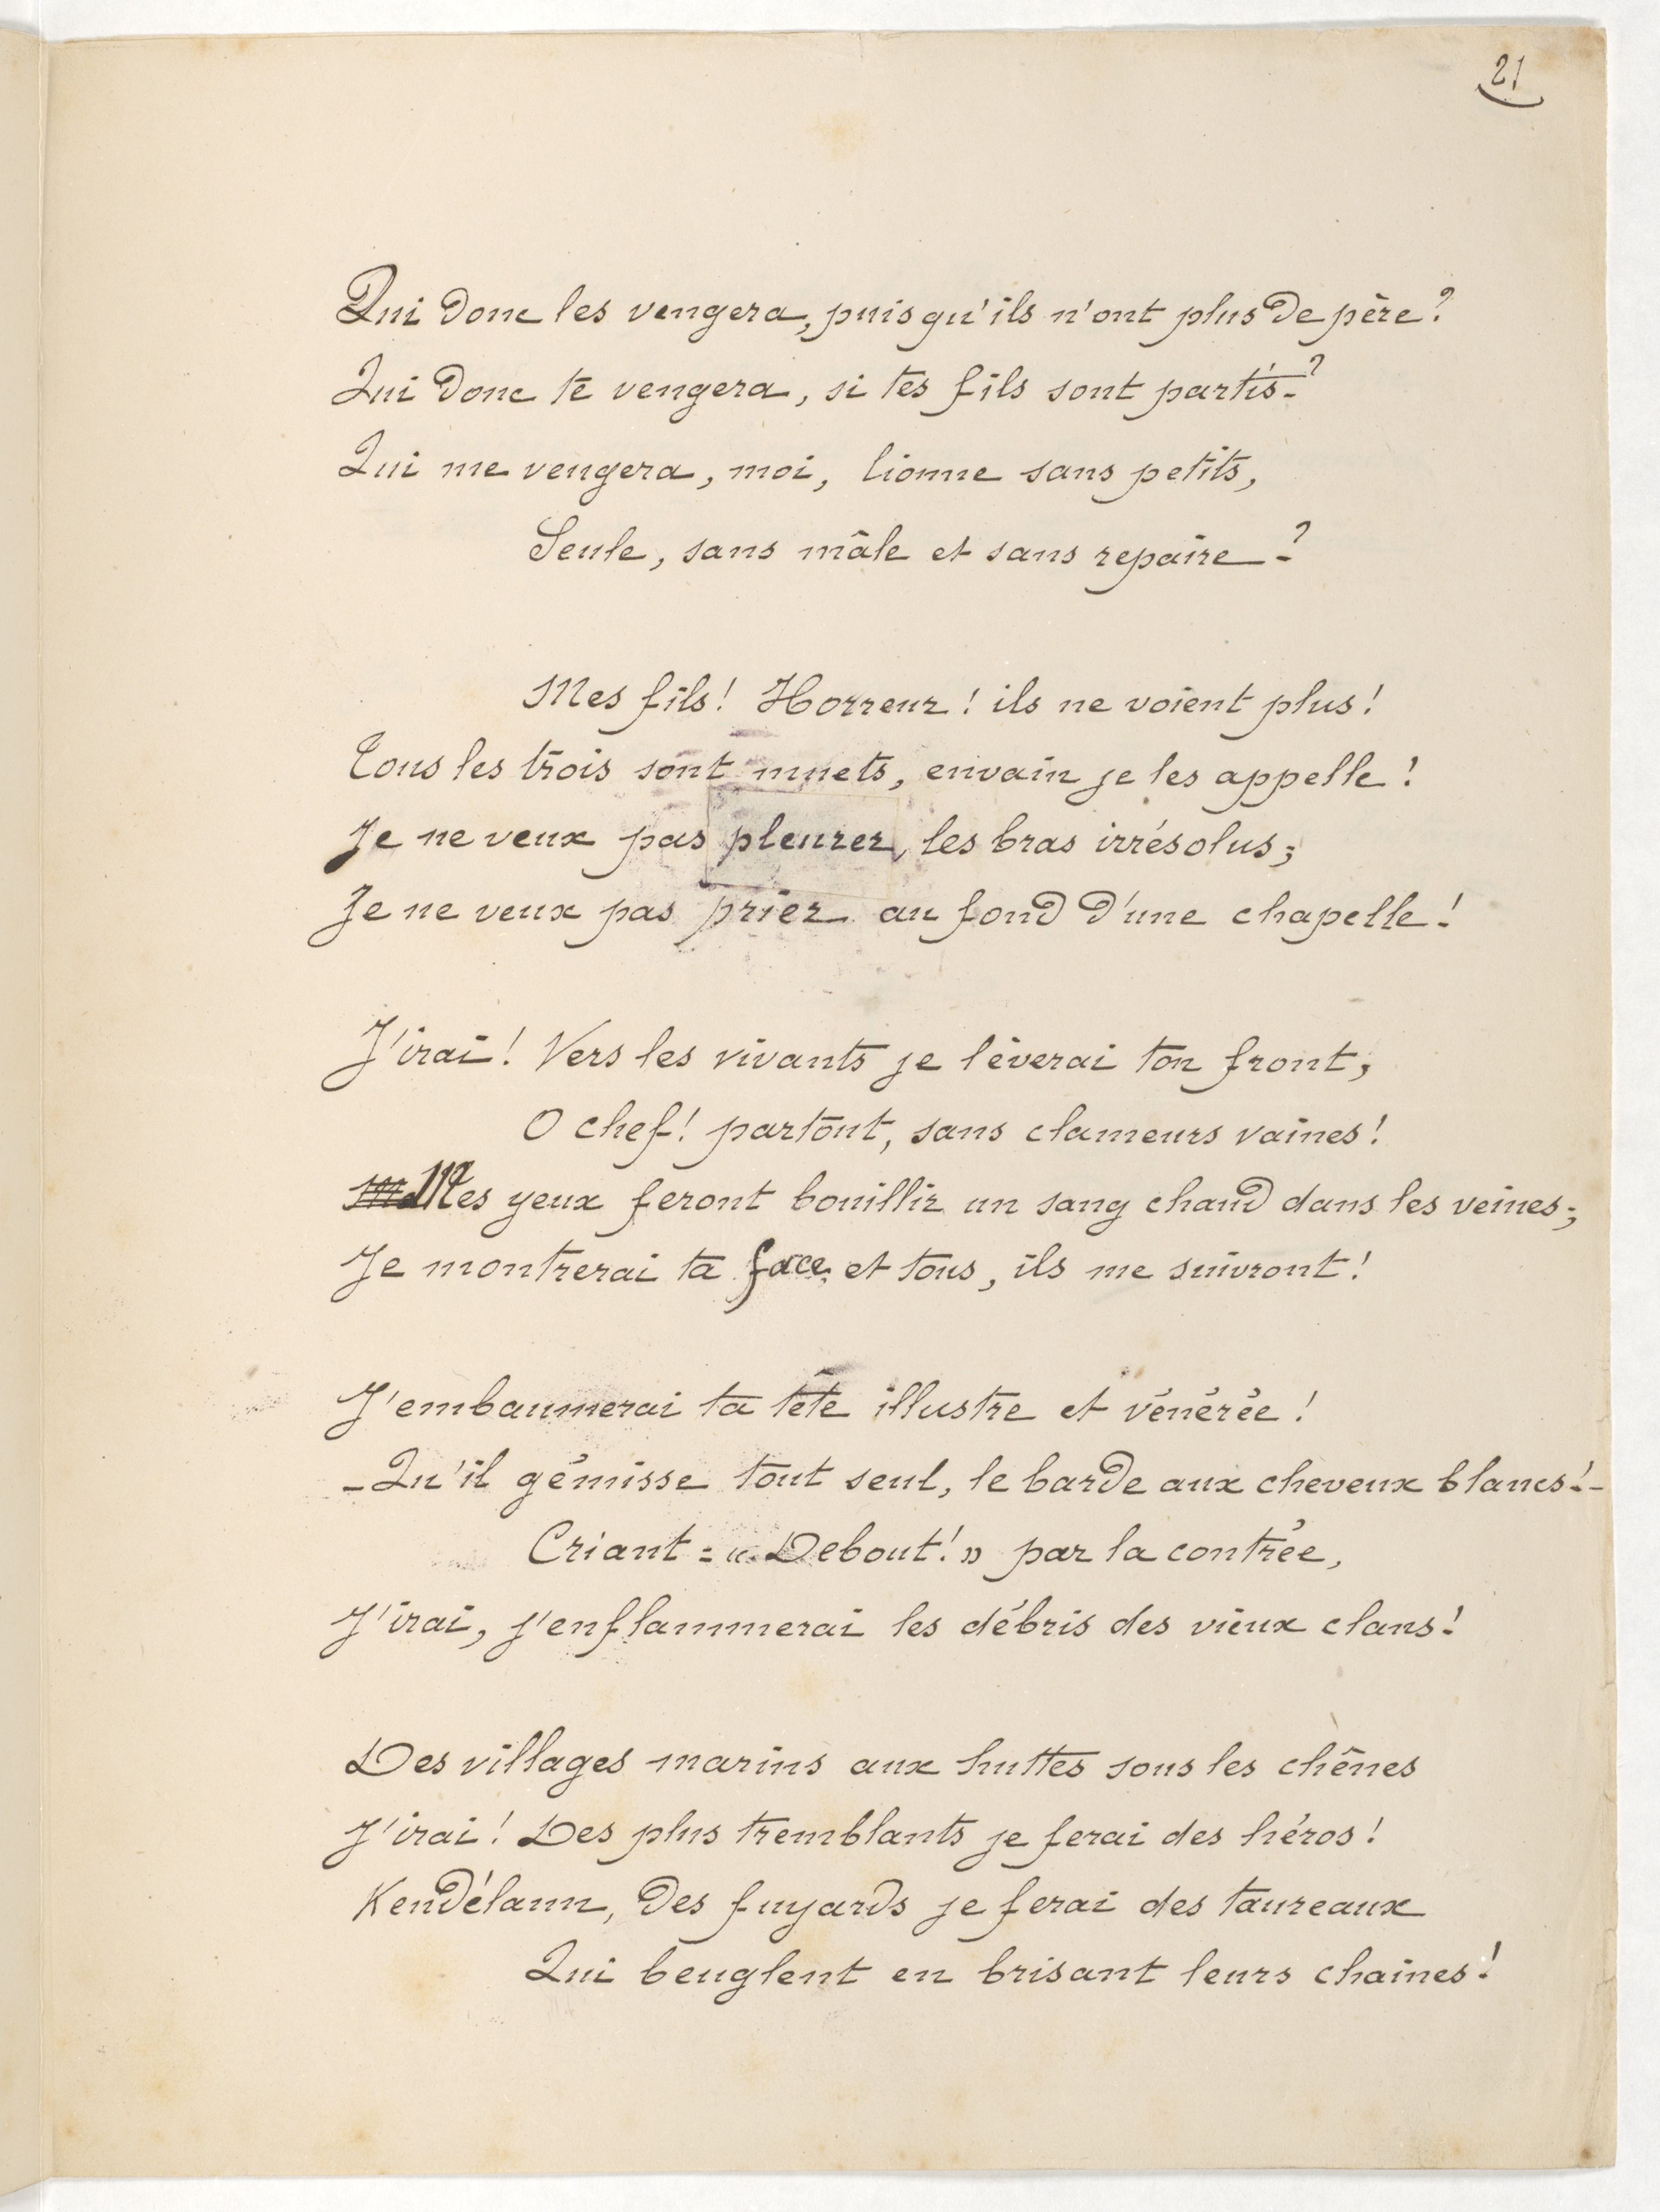 21
Qui donc les vengera, puisqu'ils n'ont plus de père?
Qui donc te vengera, si tes fils sont partis?
Qui me vengera, moi, lionne sans petits,
Seule, sans mâle et sans repaire?
Mes fils! Horreur! ils ne voient plus!
Tous les trois sont muets, envain je les appelle!
Je ne veux pas pleurer, les bras irrésolus;
Je ne veux pas prier au fond d'une chapelle!
J'irai! Vers les vivants je lèverai ton front,
O chef! partout, sans clameurs vaines!
Mes yeux feront bouillir un sang chaud dans les veines;
Je montrerai ta face, et tous, ils me suivront!
J'embaumerai ta tête illustre et vénérée!
-Qu'il gémisse tout seul, le barde aux cheveux blancs!-
Criant: «Debout!» par la contrée,
J'irai, j'enflammerai les débris des vieux clans!
Des villages marins aux huttes sous les chênes
J'irai! Des plus tremblants je ferai des héros!
Kendélann, des fuyards je ferai des taureaux
Qui beuglent en brisant leurs chaines!